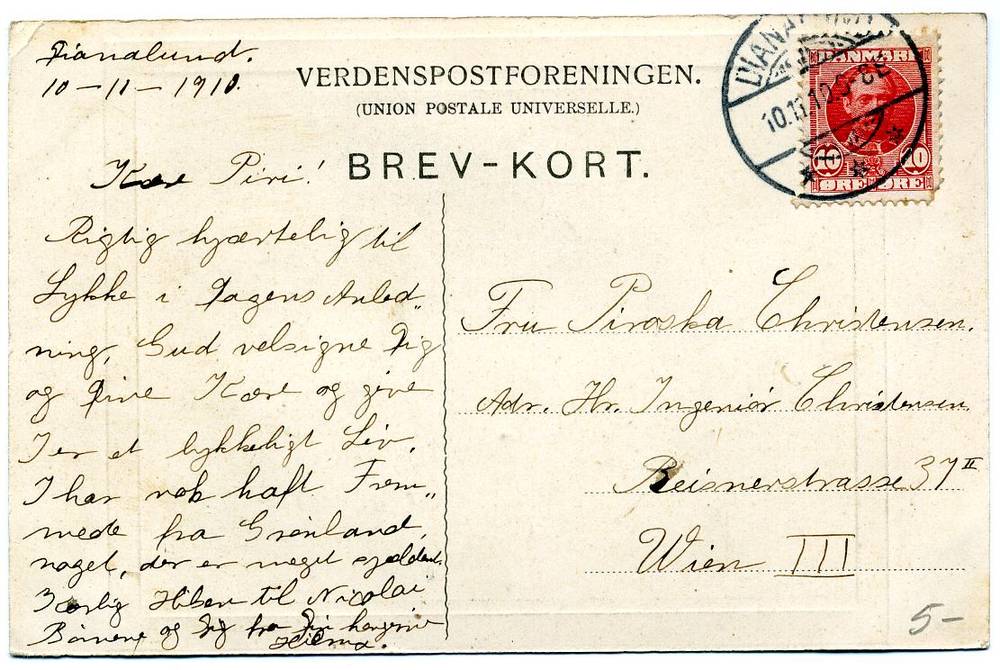 Dianalund.
10-11-1910.
VERDENSPOSTFORENINGEN.
(UNION POSTALE UNIVERSELLE.)
BREV-KORT.
DIANALUND
10.11.10
DANMARK
10
ØRE ØRE
Kære Piri!
Rigtig hjærtelig til
Lykke i Dagens Anled„
ning, Gud velsigne Dig
og Dine Kære og give
Jer et lykkeligt Liv.
I har nok haft Frem„
mede fra Grønland,
noget, der er meget sjældent.
Kærlig Hilsen til Nicolai
Børnene og Dig fra Din hengivne
Hilma.
Fru Piroska Christensen.
Adr. Hr. Ingeniør Christensen
Reisnerstrasse 37 II
Wien III
5-